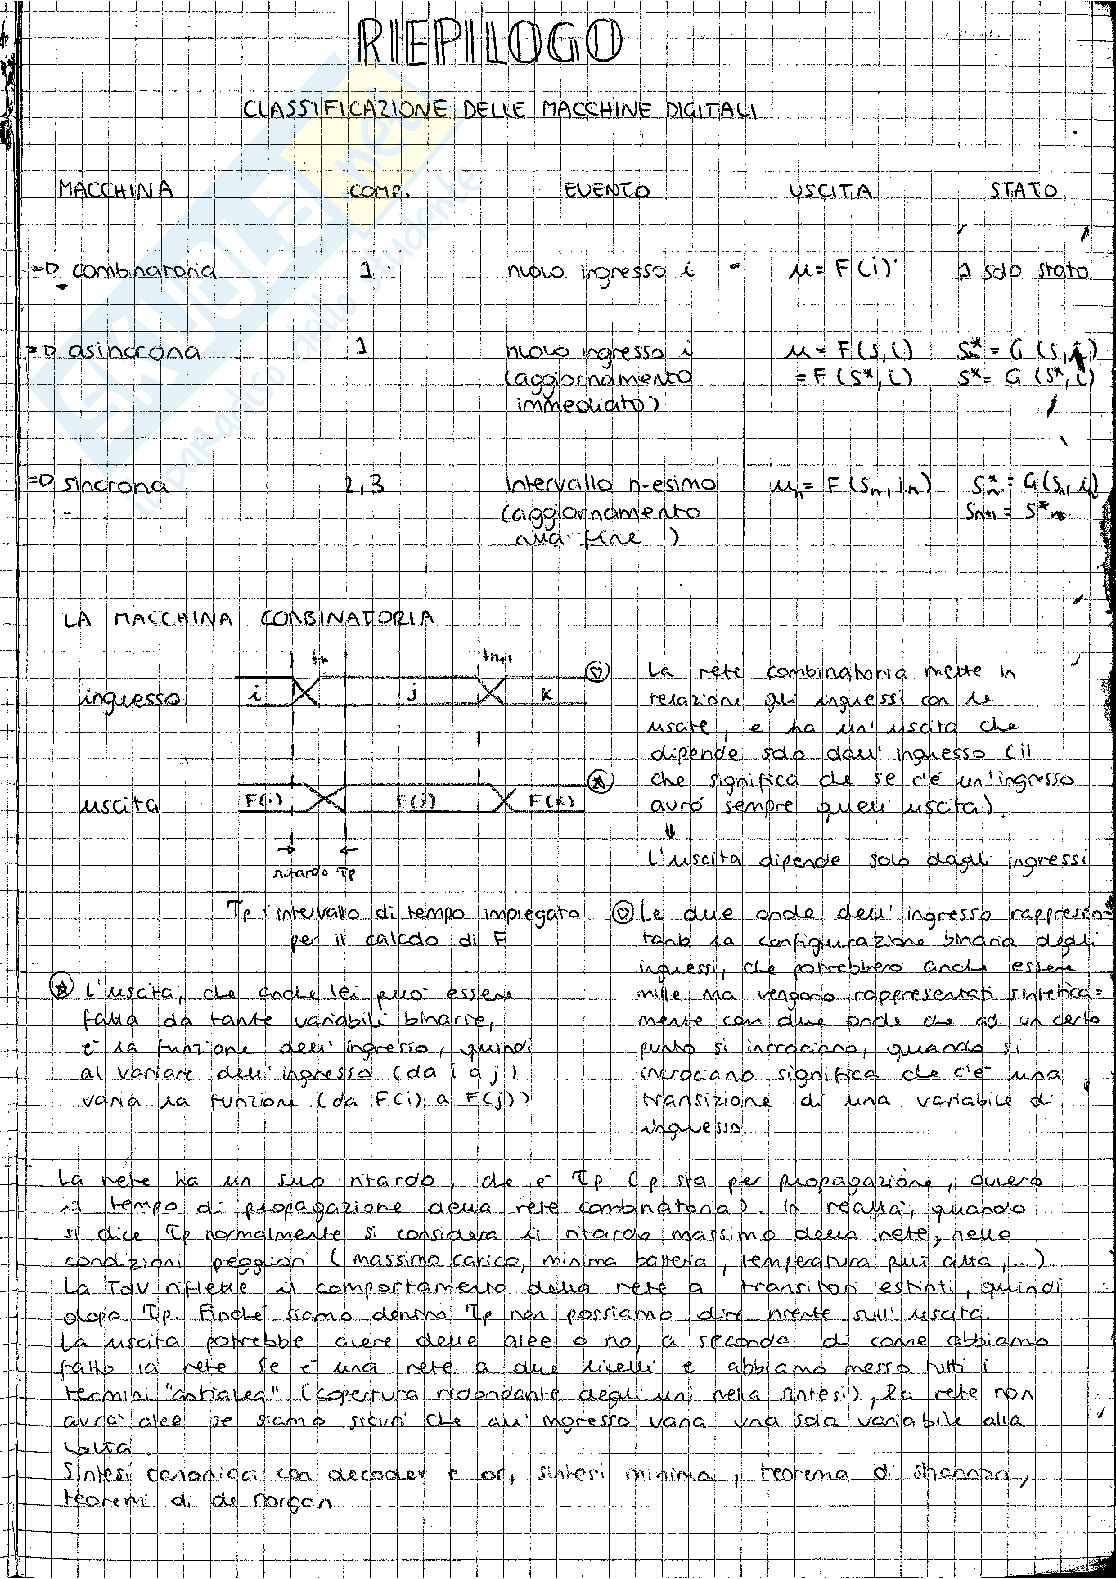 RIEPILOGO
CLASSIFICAZIONE DELLE MACCHINE DIGITALI
MACCHINA COMP. EVENTO USCITA STATO
=D combinatoria 1 nuovo ingresso i u = F(i) 1 solo stato
=D asincrona 1 nuovo ingresso i u = F(s,i) s* = G(s,i)
(aggiornamento = F(s*,i) s* = G(s*,i)
immediato)
=D sincrona 2,3 intervallo n-esimo un = F(sn,in) s*n = G(sn,in)
(aggiornamento sn+1 = s*n
alla fine)
LA MACCHINA COMBINATORIA
tn tn+1
ingresso i j k
uscita F(i) F(j) F(k)
ritardo τp
τp: intervallo di tempo impiegato
per il calcolo di F
La rete combinatoria mette in
relazione gli ingressi con le
uscite, e ha un'uscita che
dipende solo dall'ingresso (il
che significa che se c'è un'ingresso
avrò sempre quell'uscita).
L'uscita dipende solo dagli ingressi
Le due onde dell'ingresso rappresen=
tano la configurazione binaria degli
ingressi, che potrebbero anche essere
mille, ma vengono rappresentati sintetica=
mente con due onde che ad un certo
punto si incrociano, quando si
incrociano significa che c'è una
transizione di una variabile di
ingresso
L'uscita, che anche lei può essere
fatta da tante variabili binarie,
è la funzione dell'ingresso, quindi
al variare dell'ingresso (da i a j)
varia la funzione (da F(i) a F(j))
La rete ha un suo ritardo, che è τp (p sta per propagazione, ovvero
il tempo di propagazione della rete combinatoria). In realtà, quando
si dice τp normalmente si considera il ritardo massimo della rete, nelle
condizioni peggiori (massimo carico, minima batteria, temperatura più alta, ...)
La TdV riflette il comportamento della rete a transitori estinti, quindi
dopo τp. Finché siamo dentro τp non possiamo dire niente sull'uscita.
La uscita potrebbe avere delle alee o no, a seconda di come abbiamo
fatto la rete. Se è una rete a due livelli e abbiamo messo tutti i
termini "antialea" (copertura ridondante degli uni nella sintesi), la rete non
avrà alee se siamo sicuri che all'ingresso varia una sola variabile alla
volta.
Sintesi canonica con decoder e or, sintesi minima, teorema di shannon,
teoremi di de Morgan